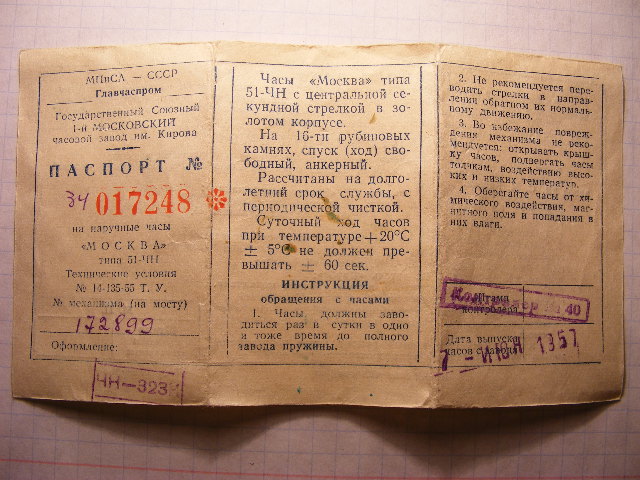 МПиСА — СССР
Главчаспром
Государственный Союзный
1-й МОСКОВСКИЙ
часовой завод им. Кирова
ПАСПОРТ №
34 017248
на наручные часы
«МОСКВА»
типа 51-ЧН
Технические условия
№ 14-135-55 Т. У.
№ механизма (на мосту)
172899
Оформление:
ЧН—323
Часы «Москва» типа
51-ЧН с центральной се-
кундной стрелкой в зо-
лотом корпусе.
На 16-ти рубиновых
камнях, спуск (ход) сво-
бодный, анкерный.
Рассчитаны на долго-
летний срок службы, с
периодической чисткой.
Суточный ход часов
при температуре +20°С
± 5°С не должен пре-
вышать ± 60 сек.
ИНСТРУКЦИЯ
обращения с часами
1. Часы, должны заво-
диться раз в сутки в одно
и тоже время до полного
завода пружины.
2. Не рекомендуется пере-
водить стрелки в направ-
лении обратном их нормаль-
ному движению.
3. Во избежание повреж-
дения механизма не реко-
мендуется: открывать крыш-
ку часов, подвергать часы
толчкам, воздействию высо-
ких и низких температур.
4. Оберегайте часы от хи-
мического воздействия, маг-
нитного поля и попадания в
них влаги.
Штамп
контролера
40
Дата выпуска
часов с завода
7 - ИЮН 1957